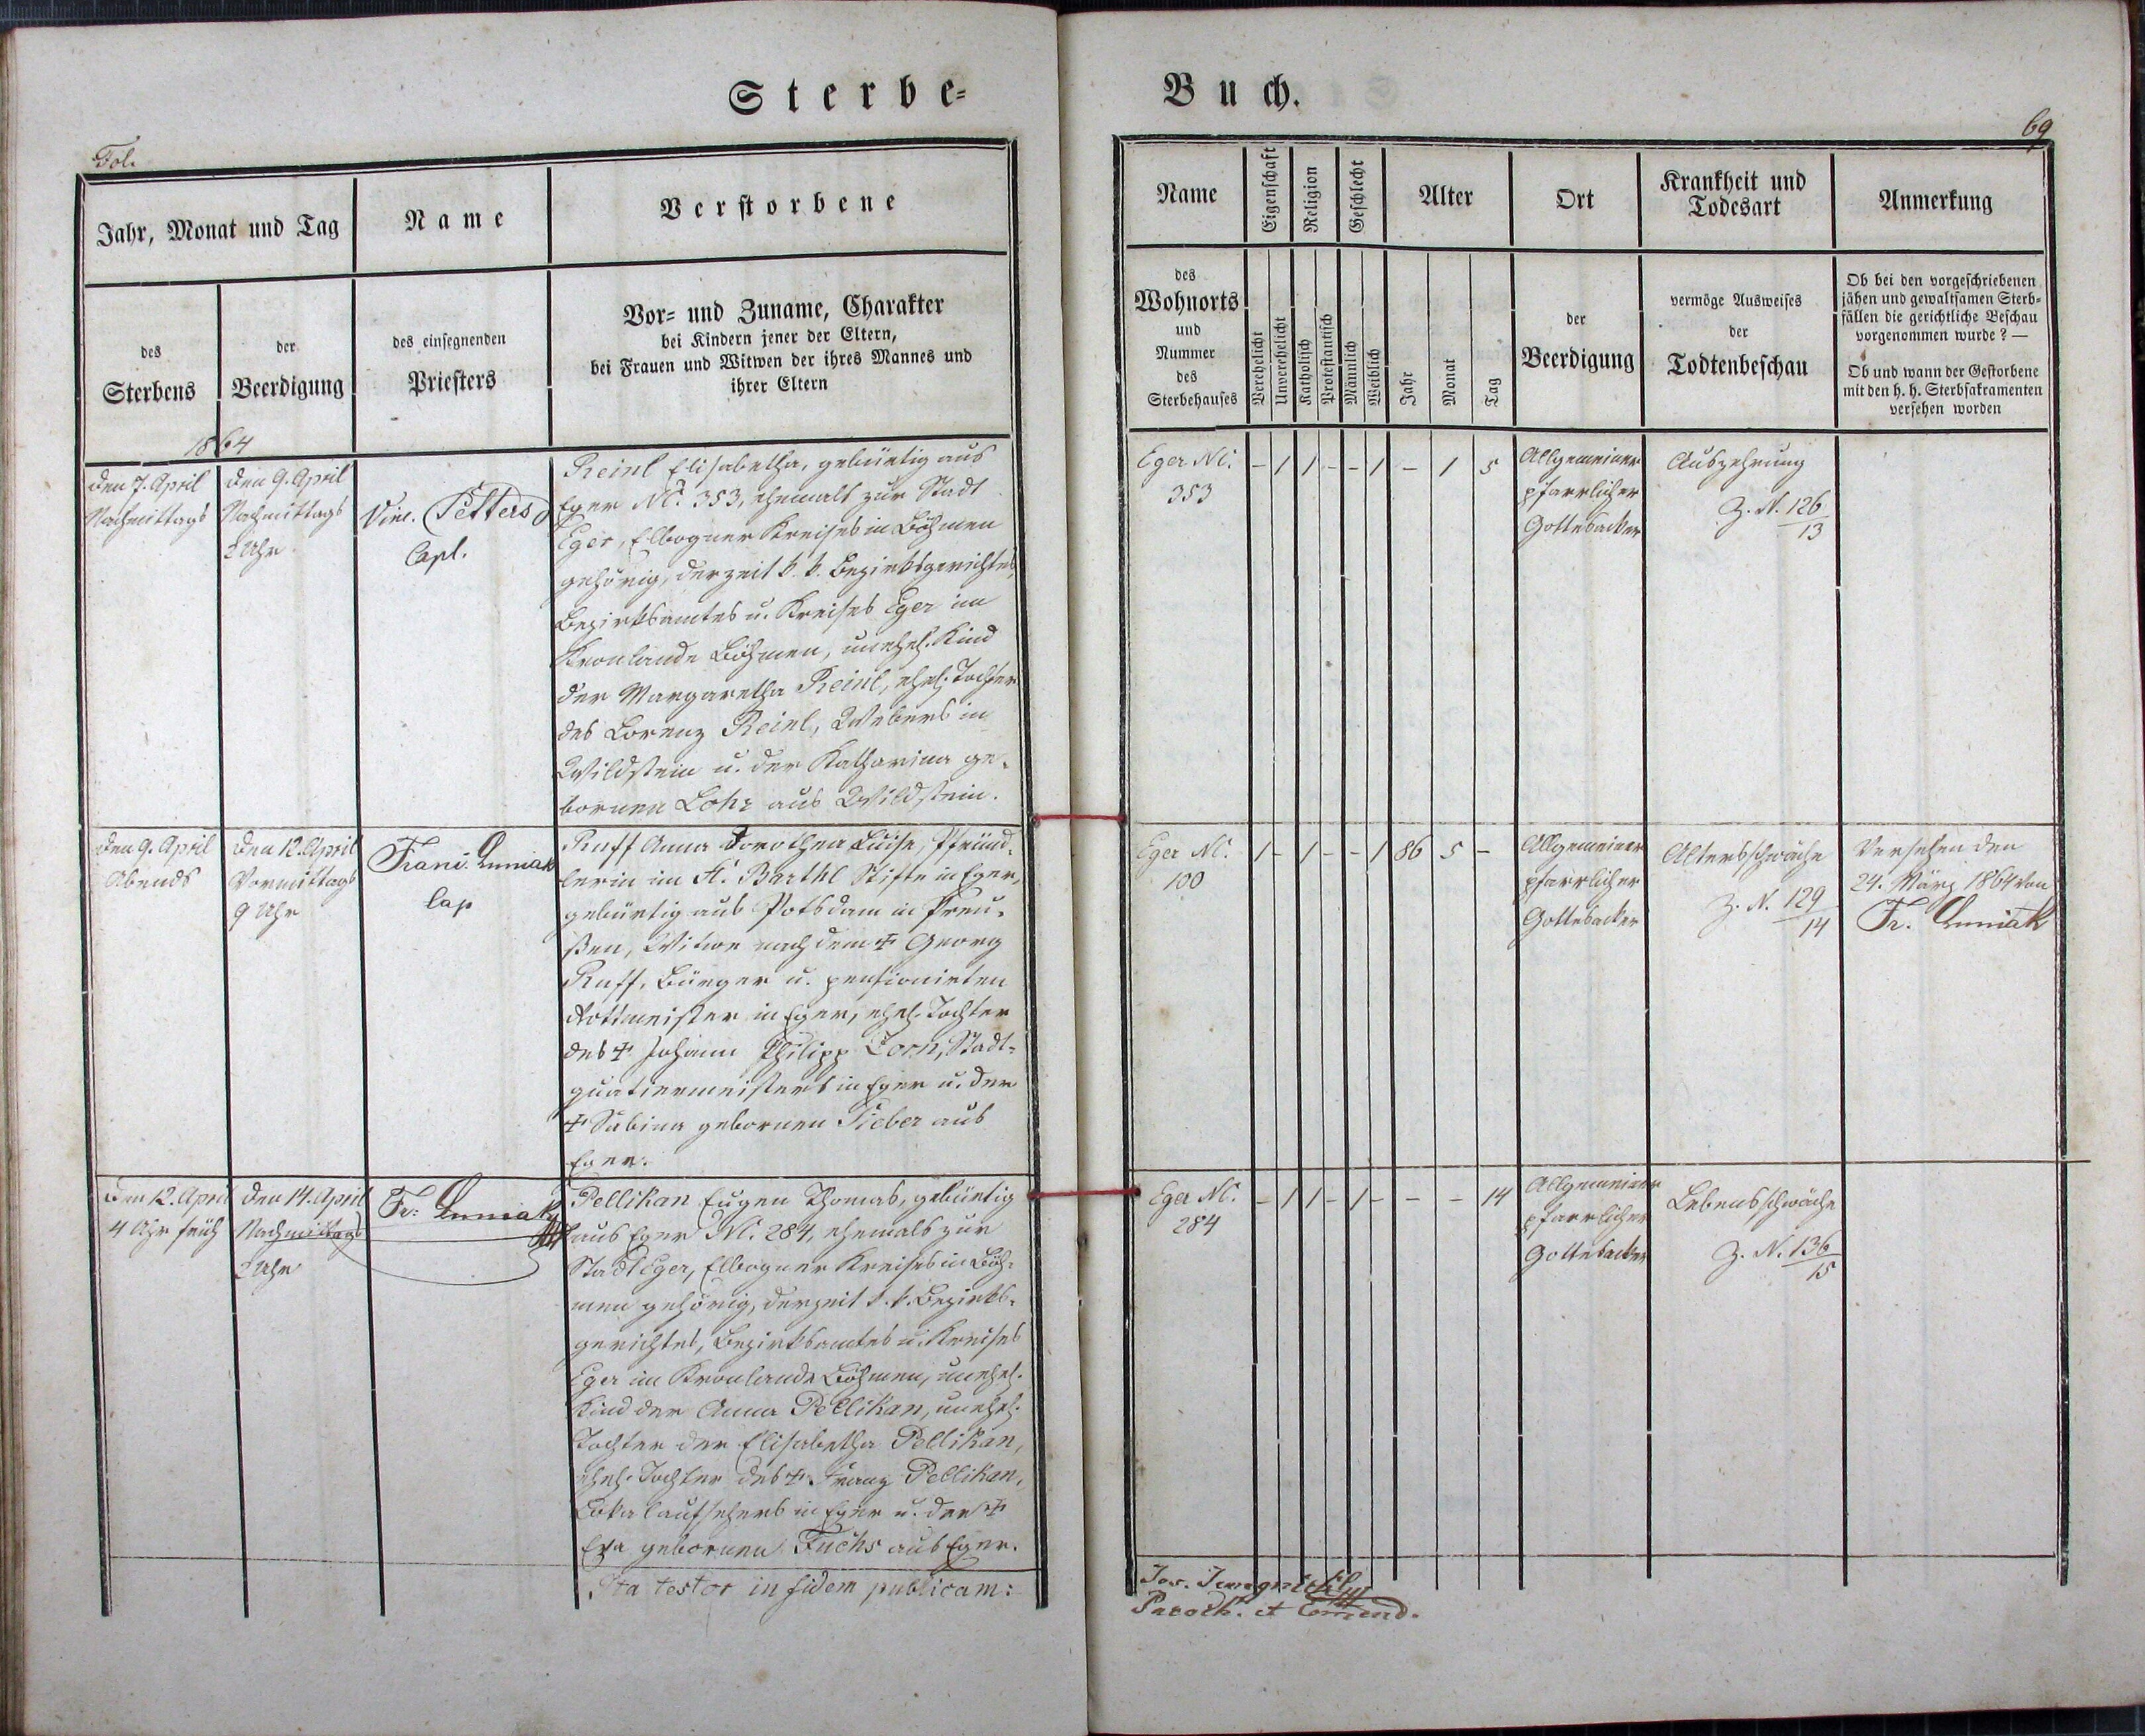 Sterbe-
Buch.
Fol.
69
Jahr, Monat und Tag
Name
Verstorbene
des
Sterbens
der
Beerdigung
des einsegnenden
Priesters
Vor- und Zuname, Charakter
bei Kindern jener der Eltern,
bei Frauen und Witwen der ihres Mannes und
ihrer Eltern
1864
den 7. April
Nachmittags
den 9. April
Nachmittags
2 Uhr
Vinc. Petters
Capl.
Reinl Elisabetha, gebürtig aus
Eger Nc. 353, ehemals zur Stadt
Eger, Elbogner Kreises in Böhmen
gehörig, derzeit k. k. Bezirksgerichtes,
Bezirksamtes u. Kreises Eger im
Kronlande Böhmen, unehel. Kind
der Margaretha Reinl, ehel. Tochter
des Lorenz Reinl, Webers in
Wildstein u. der Katharina ge-
bornen Lohr aus Wildstein.
den 9. April
Abends
den 12. April
Vormittags
9 Uhr
Cap
Ruff Anna Dorothea Luise, Pfründ-
lerin im St. Barthl Stifte in Eger,
gebürtig aus Potsdam in Preu-
ßen, Witwe nach dem † Georg
Ruff, Bürger u. pensionirten
Rottmeister in Eger, ehel. Tochter
des † Johann Philipp Zorn, Stadt-
quatiermeisters in Eger u. der
† Sabina gebornen Pieber aus
Eger.
den 12. April
4 Uhr früh
den 14. April
Nachmittags
2 Uhr
Fr.
Pellikan Eugen Thomas, gebürtig
aus Eger Nc. 284, ehemals zur
Stadt Eger, Elbogner Kreises in Böh-
men gehörig, derzeit k. k. Bezirks-
gerichtes, Bezirksamtes u. Kreises
Eger im Kronlande Böhmen, unehel.
Kind der Anna Pellikan, unehel.
Tochter der Elisabetha Pellikan,
ehel. Tochter des † Franz Pellikan,
Lokalaufsehers in Eger u. der †
Eva gebornen Fuchs aus Eger.
Ita testor in fidem publicam:
Name
Eigenschaft
Religion
Geschlecht
Alter
Ort
Krankheit und
Todesart
Anmerkung
des
Wohnorts
und
Nummer
des
Sterbehauses
Verehelicht
Unverehelicht
Katholisch
Protestantisch
Männlich
Weiblich
Jahr
Monat
Tag
der
Beerdigung
vermöge Ausweises
der
Todtenbeschau
Ob bei den vorgeschriebenen
jähen und gewaltsamen Sterb-
fällen die gerichtliche Beschau
vorgenommen wurde? —
Ob und wann der Gestorbene
mit den h. h. Sterbsakramenten
versehen worden
Eger Nc.
353
- / / - - / - 1 5
Allgemeiner
pfarrlicher
Gottesacker
Auszehrung
Z. N. 126
13
Eger Nc.
100
/ - / - - / 86 5 -
Allgemeiner
pfarrlicher
Gottesacker
Altersschwäche
Z. N. 129
14
Versehen den
24. März 1864 von
Fr.
Eger Nc.
284
- / / - / - - - 14
Allgemeiner
pfarrlicher
Gottesacker
Lebensschwäche
Z. N. 136
15
Jos.
Paroch. et Comend.